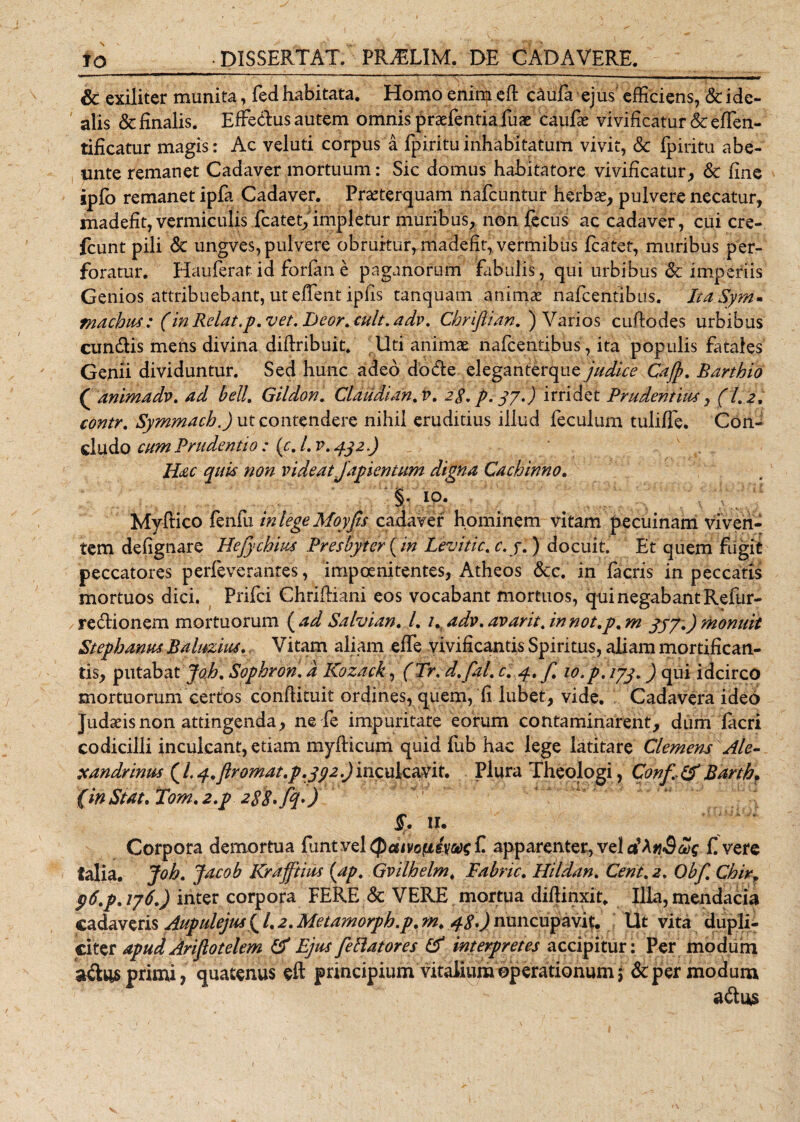 10 · DISSERTAT. PRÆLIM. DE CADAVERE.
& exiliter munita, ſed habitata. Homo enim eſt cauſa ejus efficiens, & ide-
alis & finalis. Effectus autem omnis præſentia ſuæ cauſæ vivificatur & eſſen-
tificatur magis: Ac veluti corpus à ſpiritu inhabitatum vivit, & ſpiritu abe-
unte remanet Cadaver mortuum: Sic domus habitatore vivificatur, & ſine
ipſo remanet ipſa Cadaver. Præterquam naſcuntur herbæ, pulvere necatur,
madefit, vermiculis ſcatet, impletur muribus, non ſecus ac cadaver, cui cre-
ſcunt pili & ungves, pulvere obruitur, madefit, vermibus ſcatet, muribus per-
foratur. Hauſerat id forſan è paganorum fabulis, qui urbibus & imperiis
Genios attribuebant, ut eſſent ipſis tanquam animæ naſcentibus. Ita Sym-
machus: (in Relat. p. vet. Deor. cult. adv. Chriſtian. ) Varios cuſtodes urbibus
cunctis mens divina diſtribuit. Uti animæ naſcentibus, ita populis fatales
Genii dividuntur. Sed hunc adeò docte eleganterque judice Caſp. Barthio
( animadv. ad bell. Gildon. Claudian. v. 28. p. 37.) irridet Prudentius, (l. 2.
contr. Symmach.) ut contendere nihil eruditius illud ſeculum tuliſſe. Con-
cludo cum Prudentio: (c. l. v. 432.)
Hæc quis non videat ſapientum digna Cachinno.
§. 10.
Myſtico ſenſu in lege Moyſis cadaver hominem vitam pecuinam viven-
tem deſignare Heſychius Presbyter (in Levitic. c. 5.) docuit. Et quem fugit
peccatores perſeverantes, impœnitentes, Atheos &c. in ſacris in peccatis
mortuos dici. Priſci Chriſtiani eos vocabant mortuos, qui negabant Reſur-
rectionem mortuorum ( ad Salvian. l. 1. adv. avarit. in not. p. m 357.) monuit
Stephanus Baluzius. Vitam aliam eſſe vivificantis Spiritus, aliam mortifican-
tis, putabat Joh. Sophron. à Kozack, (Tr. d. ſal. c. 4. f. 10. p. 173. ) qui idcirco
mortuorum certos conſtituit ordines, quem, ſi lubet, vide. Cadavera ideò
Judæis non attingenda, ne ſe impuritate eorum contaminarent, dum ſacri
codicilli inculcant, etiam myſticum quid ſub hac lege latitare Clemens Ale-
xandrinus (l. 4. ſtromat. p. 392.) inculcavit. Plura Theologi, Conf. & Barth.
(in Stat. Tom. 2. p 288. ſq.)
§. 11.
Corpora demortua ſunt vel φαινομένως ſ. apparenter, vel ἀληθῶς ſ. vere
talia. Joh. Jacob Krafftius (ap. Gvilhelm. Fabric. Hildan. Cent. 2. Obſ. Chir.
96. p. 176.) inter corpora FERE & VERE mortua diſtinxit. Illa, mendacia
cadaveris Aupulejus (l. 2. Metamorph. p. m. 48.) nuncupavit. Ut vita dupli-
citer apud Ariſtotelem & Ejus ſectatores & interpretes accipitur: Per modum
actus primi, quatenus eſt principium vitalium operationum; & per modum
actus